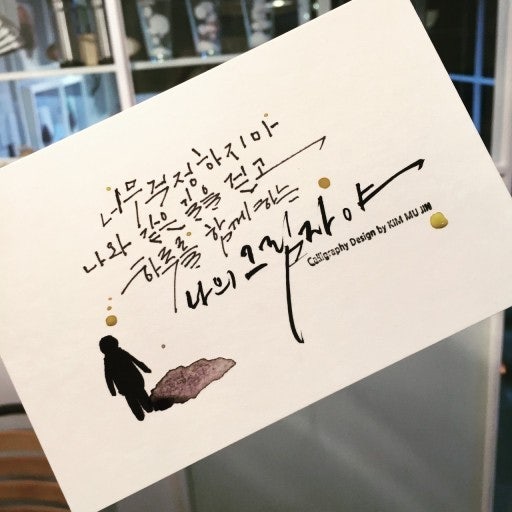 너무 걱정하지마
나와 같은 길을 걷고
하루를 함께 하는
나의 그림자야
Calligraphy Design by KIM MU JIN